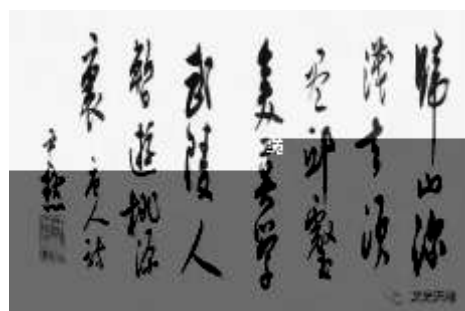 歸山深
淺去須
盡邱壑
美莫學
武陵人
暫遊桃源
裏 唐人詩